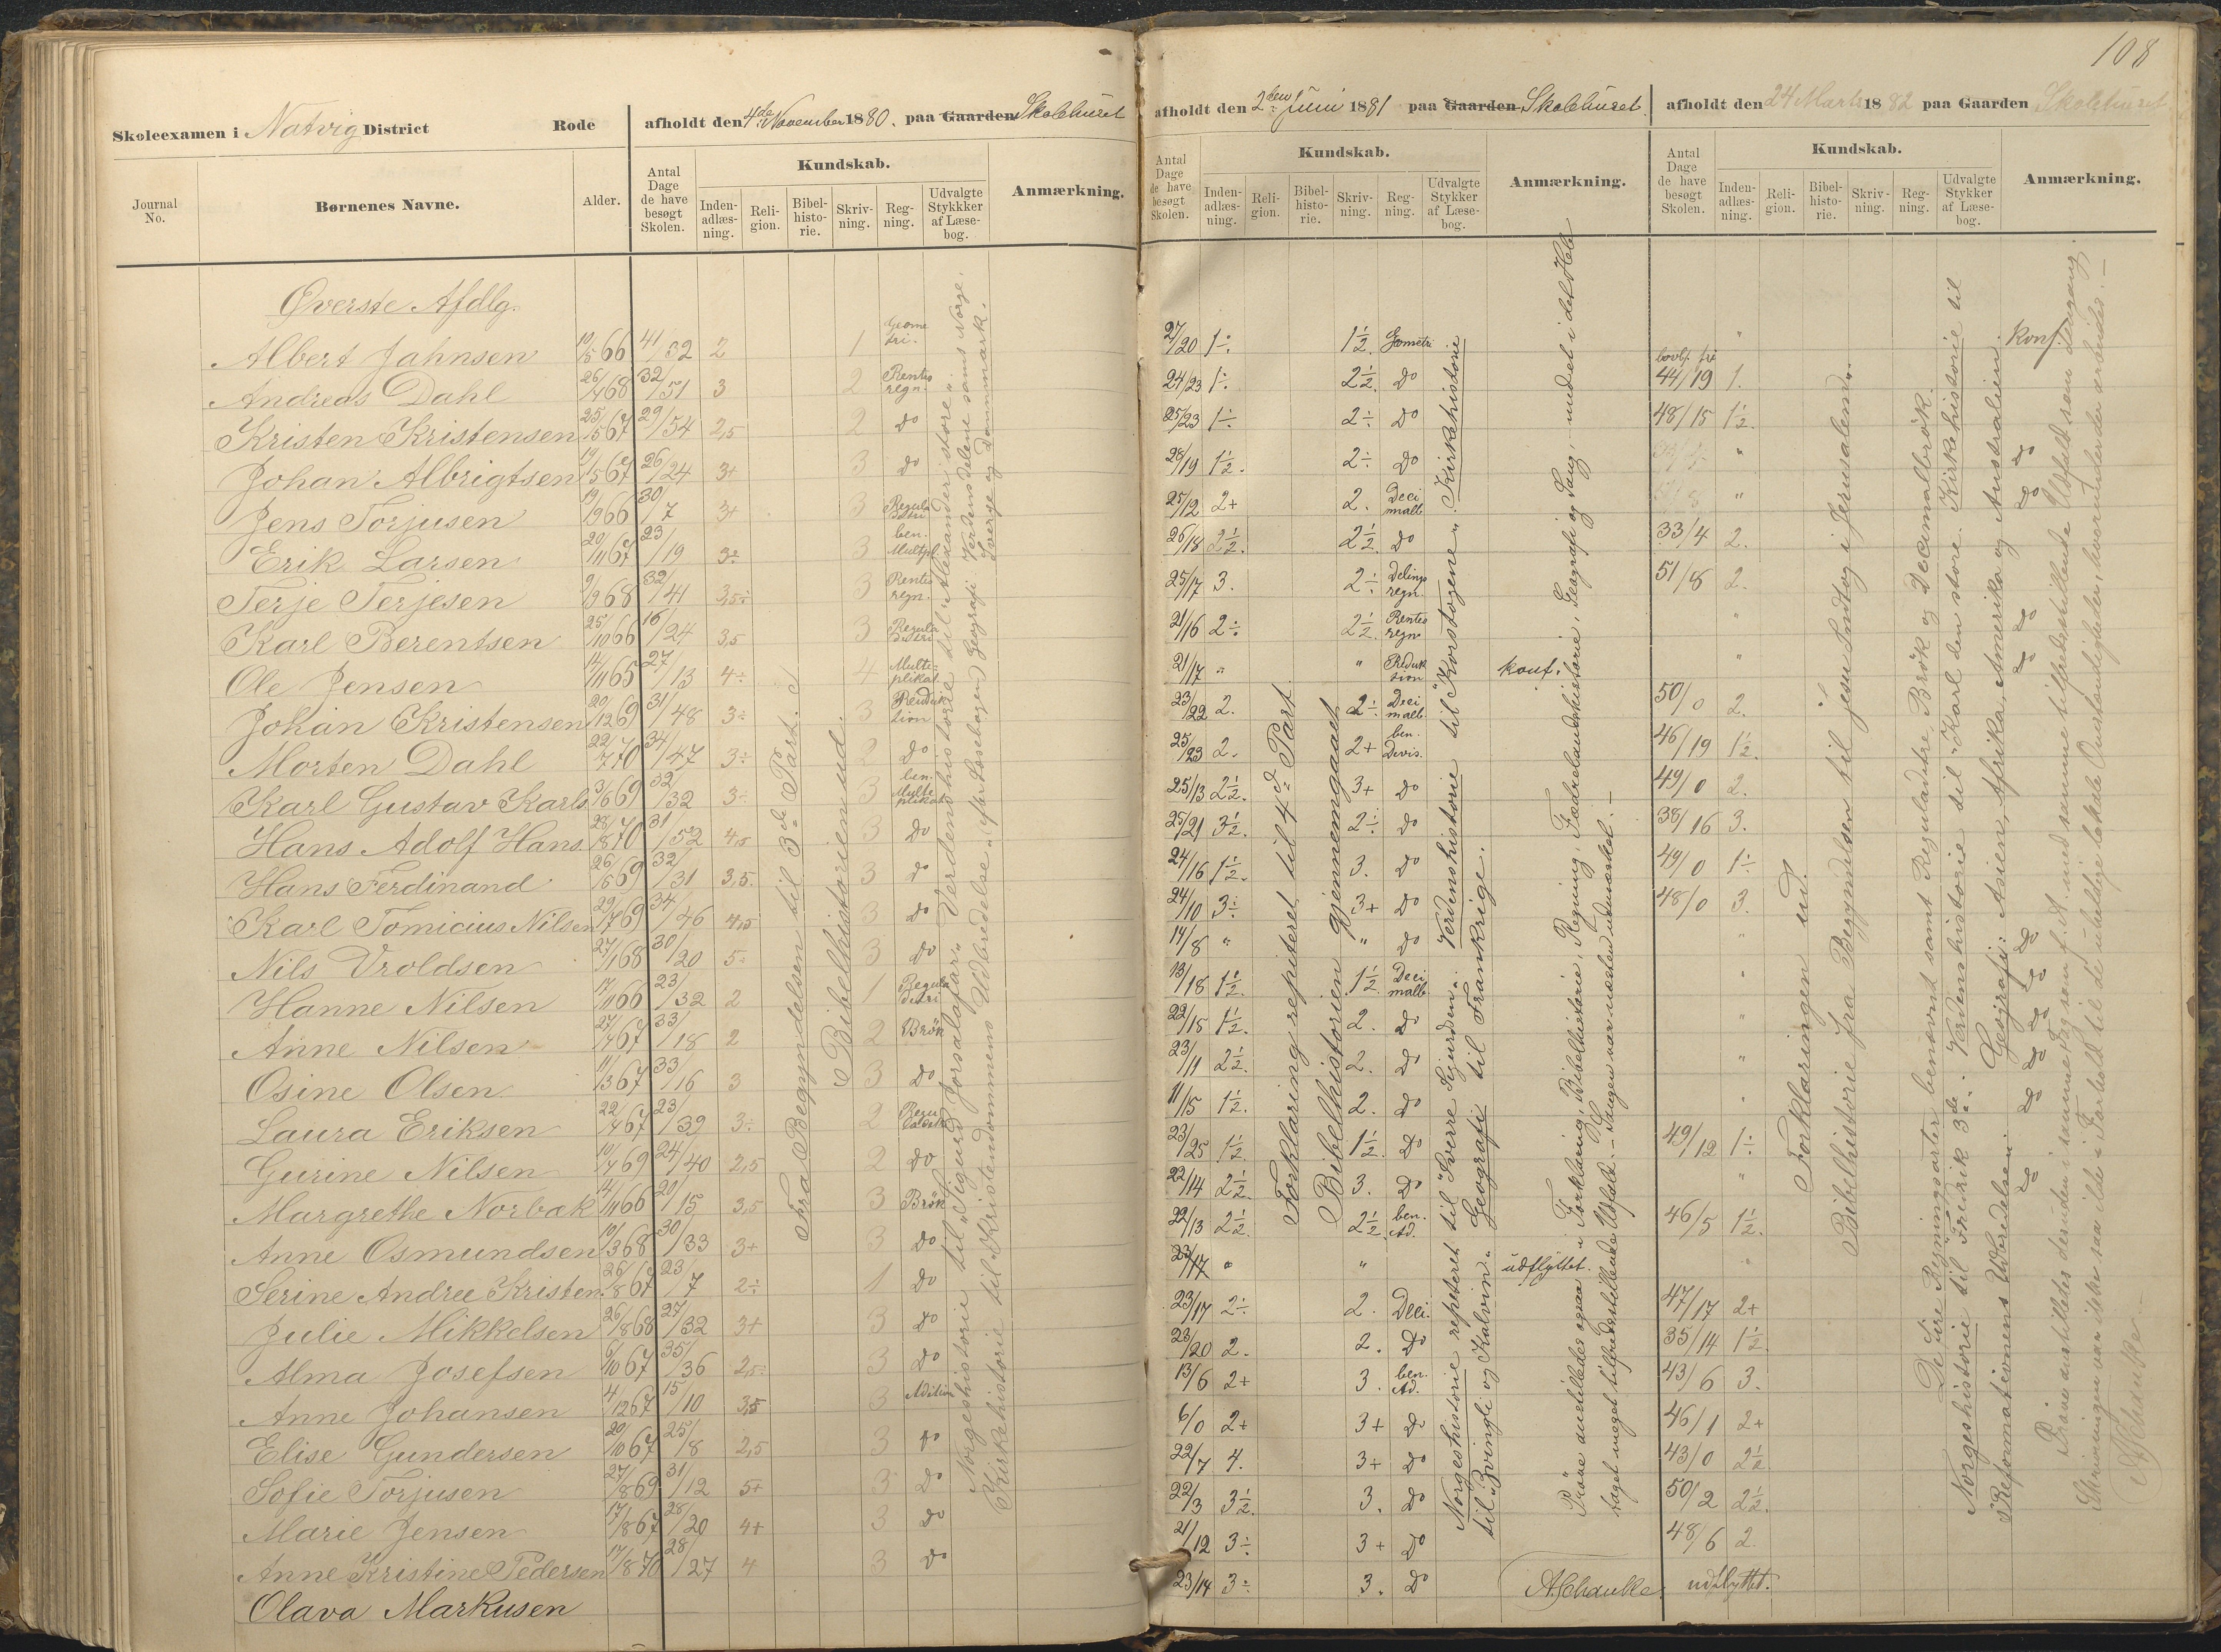 108
Skoleexamen i Natvig District Rode afholdt den 4de November 1880. paa Gaarden Skolehuset
Journal No. Børnenes Navne. Alder. Antal Dage de have besøgt Skolen. Kundskab. Anmærkning.
Inden-adlæs-ning. Reli-gion. Bibel-histo-rie. Skriv-ning. Reg-ning. Udvalgte Stykker af Læse-bog.
Øverste Afdlg.
Albert Jahnsen 10/5 66 41/32 2 1 Geome tri.
Andreas Dahl 26/4 68 32/51 3 2 Rentes regn.
Kristen Kristensen 25/5 67 29/54 2,5 2 do
Johan Albrigtsen 19/5 67 26/24 3+ 3 do
Jens Torjusen 19/9 66 30/7 3+ 3 Regula detri
Erik Larsen 20/11 67 23/19 3÷ 3 ben. Multpl.
Terje Terjesen 9/9 68 32/41 3,5÷ 3 Rentes regn.
Karl Berentsen 25/10 66 16/24 3,5 3 Regula detri
Ole Jensen 14/11 65 27/13 4÷ 4 Multi-plikat.
Johan Kristensen 20/12 69 31/48 3÷ 3 Reduk tion
Morten Dahl 22/7 70 34/47 3÷ 2 do
Karl Gustav Karls. 3/6 69 32/32 3÷ 3 ben. Multi plikat
Hans Adolf Hans. 28/8 70 31/52 4,5 3 do
Hans Ferdinand 26/6 69 32/31 3,5. 3 do
Karl Tomicius Nilsen 29/7 69 34/46 4,5 3 do
Nils Vroldsen 27/1 68 30/20 5÷ 3 do
Hanne Nilsen 17/11 66 23/32 2 1 Regula detri
Anne Nilsen 27/4 67 33/18 2 2 Brök
Osine Olsen 11/3 67 33/16 3 3 do
Laura Eriksen 22/4 67 23/39 3÷ 2
Gurine Nilsen 10/4 69 24/40 2,5 2 do
Margrethe Norbæk 14/11 66 20/15 3,5 3 Brök
Anne Osmundsen 19/3 68 30/33 3+ 3 do
Serine Andree Kristen. 26/8 67 23/7 2÷ 1 do
Julie Mikkelsen 26/8 68 27/32 3+ 3 do
Alma Josefsen 6/10 67 35/36 2,5÷ 3 do
Anne Johansen 4/12 67 15/10 3,5 3 Adition
Elise Gundersen 20/10 67 25/8 2,5 3 do
Sofie Torjusen 27/8 69 31/12 5+ 3 do
Marie Jensen 17/8 67 28/20 4+ 3 do
Anne Kristine Pedersen 17/8 70 28/27 4 3 do
Olava Markusen
Fra Begyndelsen til 3die Part.
Bibelhistorien ud.
Norgeshistorie til "Sigurd Jorsalafar" Verdenshistorie til "Alexander store".
Kirkehistorie til "Kristendommens Udbredelse" (efter Læsebogen) Geografi Verdensdelene samt Norge,
Sverige og Danmark.
afholdt den 2den Juni 1881 paa Gaarden Skolehuset.
Antal Dage de have besøgt Skolen. Kundskab. Anmærkning.
Inden-adlæs-ning. Reli-gion. Bibel-histo-rie. Skriv-ning. Reg-ning. Udvalgte Stykker af Læse-bog.
27/20 1÷. 1½. Geometri
24/23 1÷. 2½. do
25/23 1÷ 2÷ do
28/19 1½. 2÷ do
25/12 2+ 2. Deci malb.
26/18 2½. 2½. do
25/17 3. 2÷ Delings regn.
21/16 2÷ 2½ Rentes regn.
21/17 " " Reduk sion konf.
23/22 2. 2÷ Deci malb.
25/23 2. 2+ ben. Devis.
25/13 2½. 3+ do
25/21 3½. 2÷ do
24/16 1½. 3. do
24/10 3÷ 3+ do
14/8 " " do
13/18 1½. 1½. Deci malb.
22/15 1½. 2. do
23/11 2½. 2. do
11/15 1½. 2. do
23/25 1½. 1½. do
22/14 2½. 3. do
22/13 2½. 2½. ben. Ad.
23/17 " " udflyttet.
23/17 2÷ 2. Deci.
23/20 2. 2. do
13/6 2+ 3. ben. Ad.
6/0 2+ 3+ do
22/7 4. 3+ do
22/3 3½. 3. do
21/12 3÷ 3+ do
23/14 3÷ 3. do
Forklaring repiteret til 4de Part.
Bibelhistorien gjennemgaaet
Norgeshistorie repiteret til "Sverre Sigurdsøn". Verdenshistorie til "Korstogene". Kirkehistorie
til "Zvingli og Kalvin". Geografi til Frankrige.
Prøve anstilledes ogsaa i Forklaring, Bibelhistorie, Regning, Fædrelandshistorie, Geografi og Sang, med et i det Hele
taget meget tilfredsstillende Udfald.
A. Schaulke.
afholdt den 24 Marts 1882 paa Gaarden Skolehuset
Antal Dage de have besøgt Skolen. Kundskab. Anmærkning.
Inden-adlæs-ning. Reli-gion. Bibel-histo-rie. Skriv-ning. Reg-ning. Udvalgte Stykker af Læse-bog.
" konf.
44/19 1.
48/15 1½.
" do
" do
33/4 2.
51/8 2.
" do
" do
50/0 2.
46/19 1½.
49/0 2.
38/16 3.
49/0 1÷
48/0 3.
" do
" do
" do
" do
" do
49/12 1÷
" do
46/5 1½
"
47/17 2+
35/14 1½
43/6 3.
46/1 2+
43/0 2½
50/2 2½.
48/6 2.
udflyttet.
Forklaringen ud.
Bibelhistorie fra Begyndelsen til Jesu Indtog i Jerusalem.
De fire Regningsarter benævnt samt Reguladetre, Brök og Decimalbrök.
Norgeshistorie til Fredrik 3de. Verdenshistorie til "Karl den store". Kirkehistorie til
"Reformationens Udbredelse". Geografi: Asien, Afrika, Amerika og Australien.